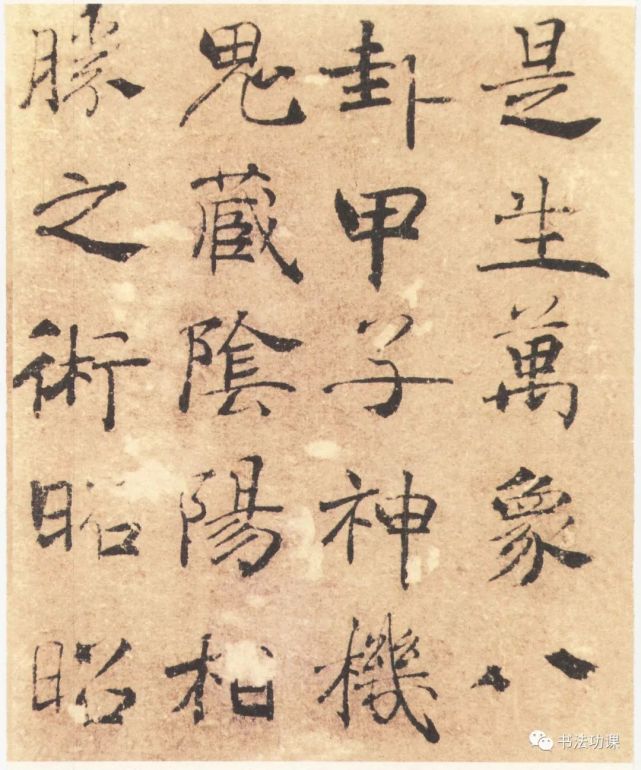 是生萬象八
卦甲子神機
鬼蔵陰陽相
勝之術昭昭
书法功课